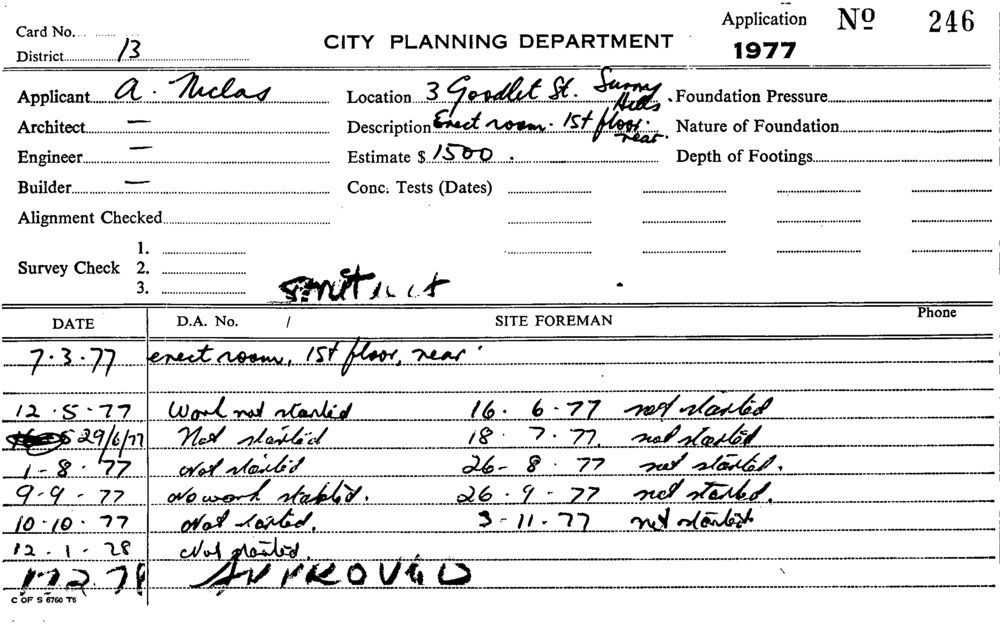 Card No.
District 13
CITY PLANNING DEPARTMENT
Application Nº 246
1977
Applicant A. Niclas Location 3 Goodlet St. Surry Hills. Foundation Pressure
Architect — Description Erect room. 1st floor. rear. Nature of Foundation
Engineer — Estimate $ 1500. Depth of Footings
Builder — Conc. Tests (Dates)
Alignment Checked
Survey Check 1.
2.
3.
DATE D.A. No. / SITE FOREMAN Phone
7.3.77 erect room, 1st floor, rear.
12.5.77 Work not started 16.6.77 not started
29/6/77 Not started 18.7.77. not started
1-8.77 Not started 26-8.77 not started.
9-9-77 No work started. 26.9-77 not started.
10-10.77 Not started. 3-11.77 not started.
12.1-78 Not started.
2.78 APPROVED
C OF S 6760 T6